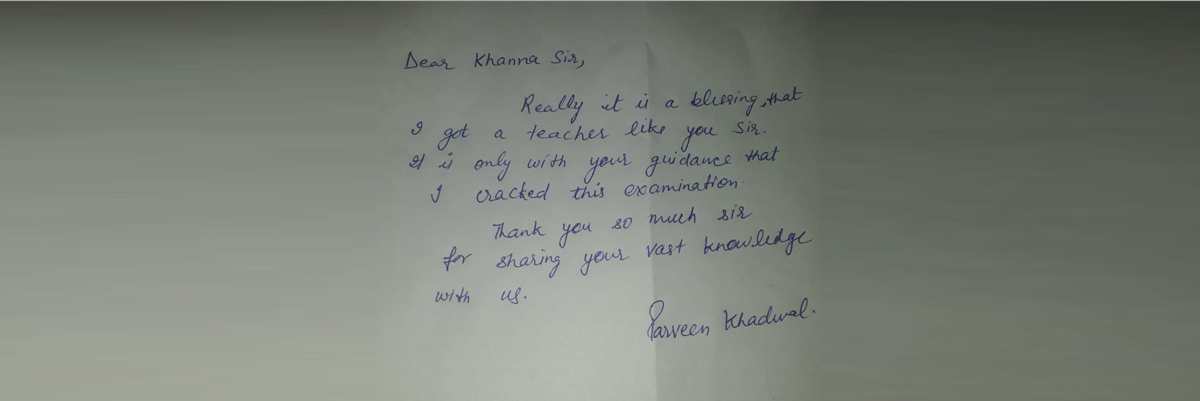 Dear Khanna Sir,
Really it is a blessing, that
I got a teacher like you Sir.
It is only with your guidance that
I cracked this examination.
Thank you so much sir
for sharing your vast knowledge
with us.
Parveen Khadwal.